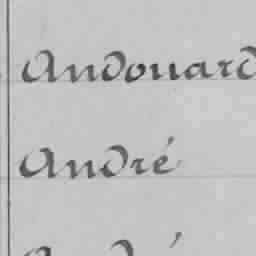 Andouard
André